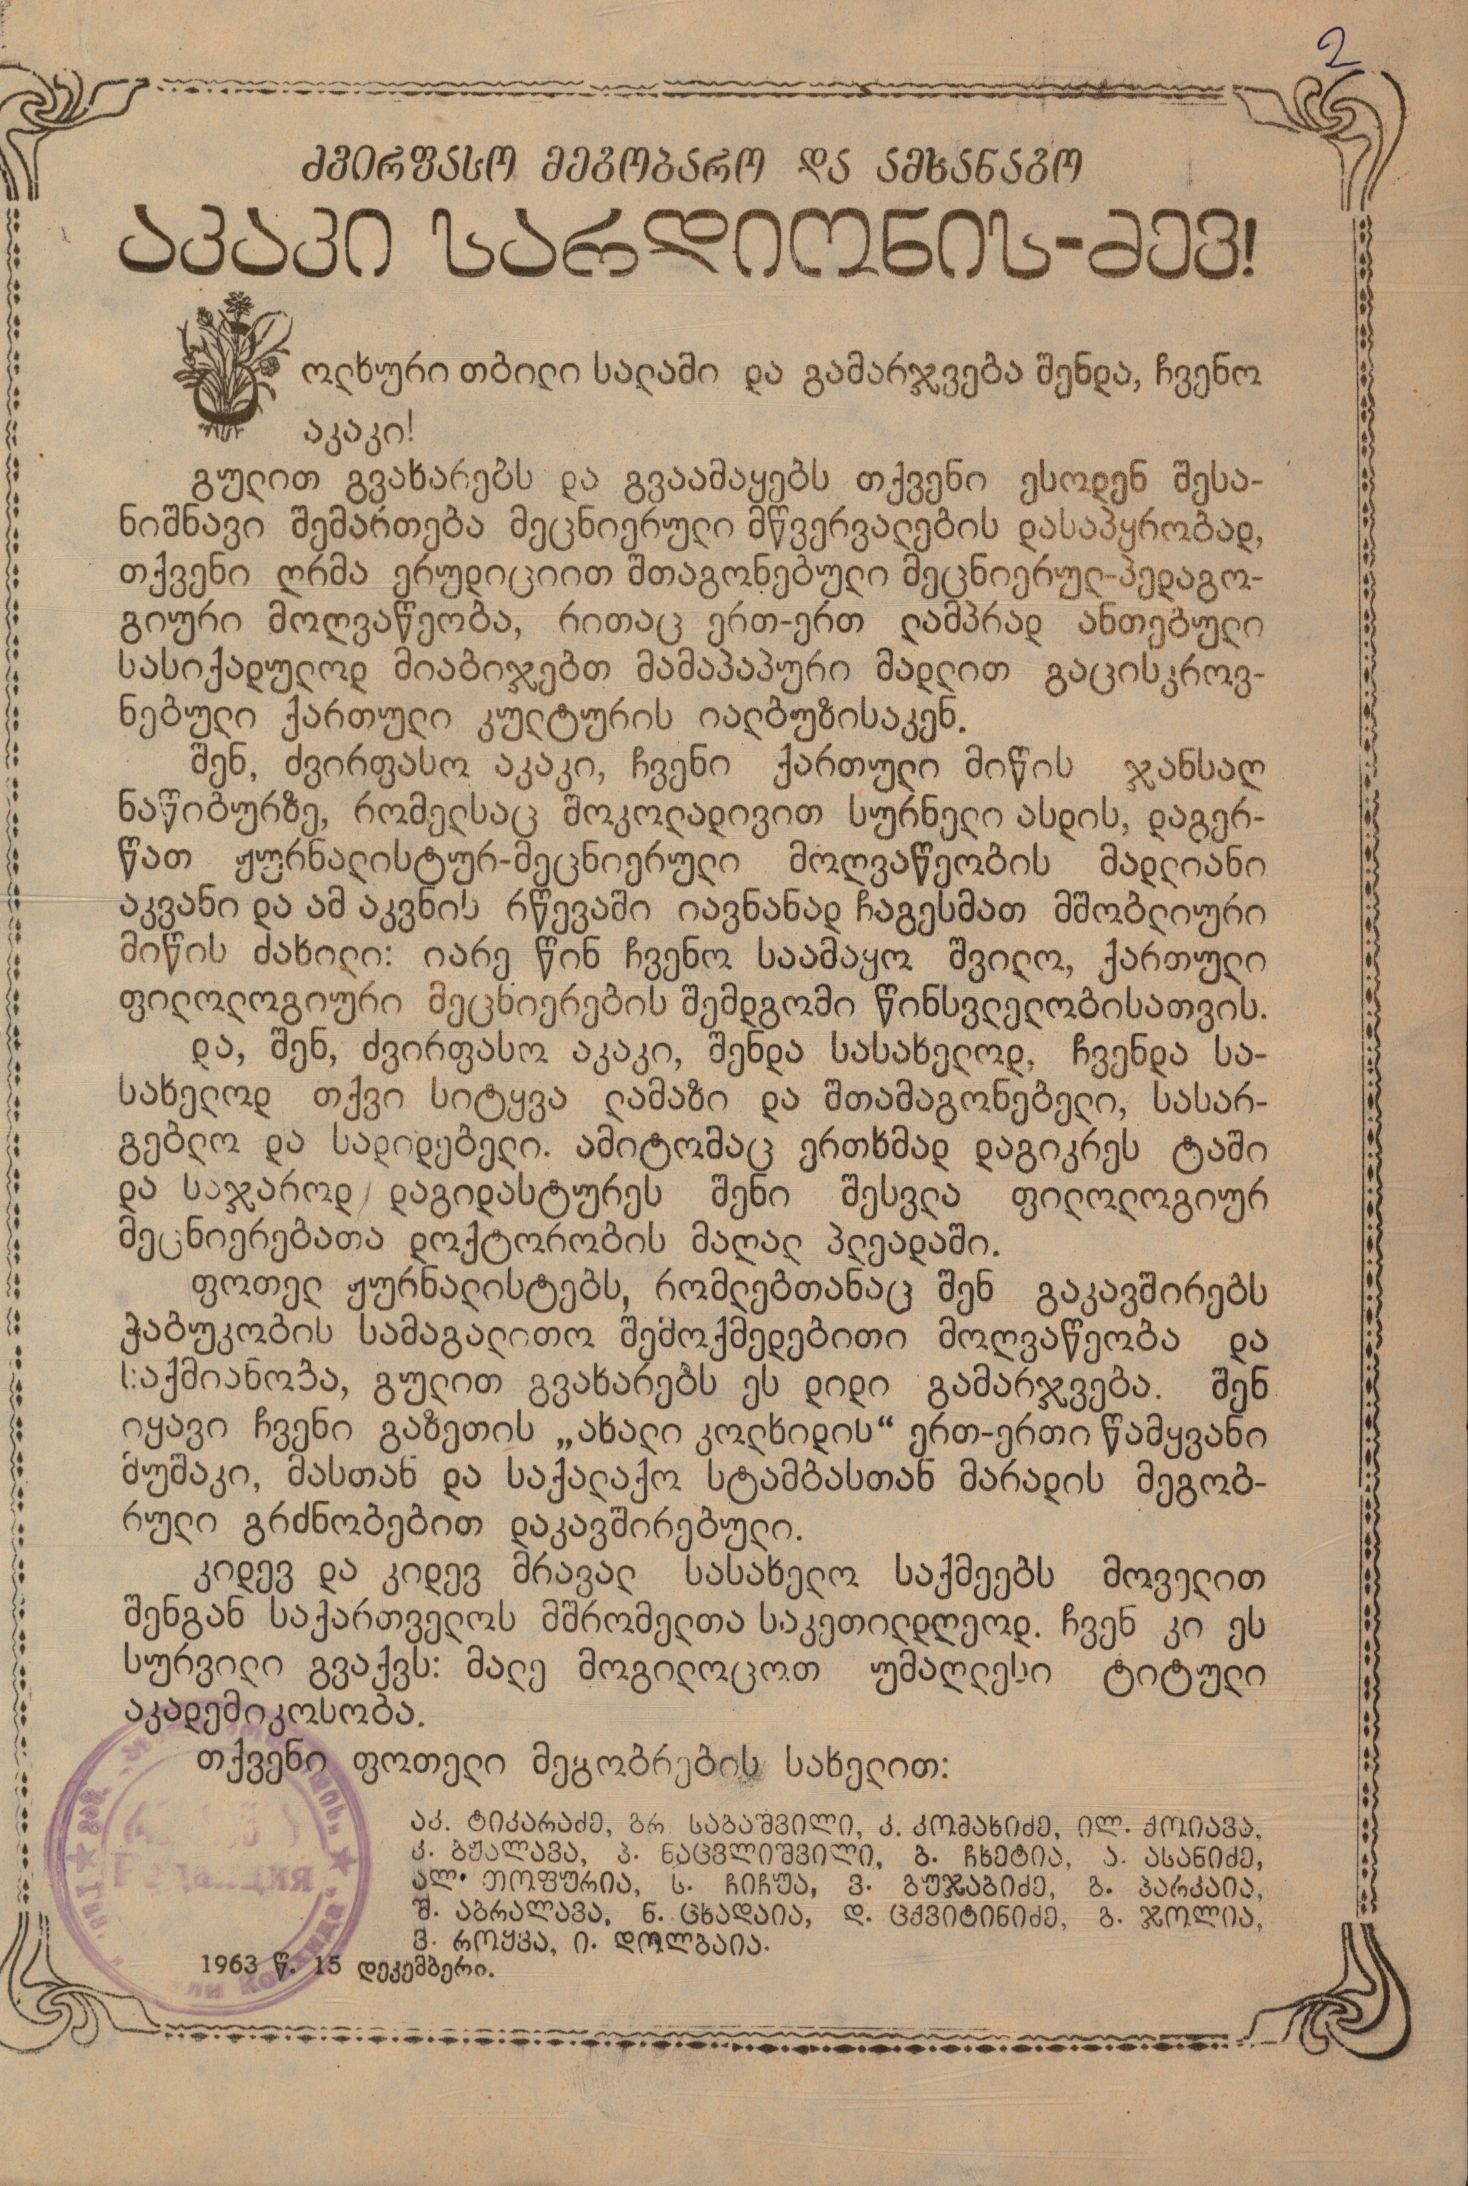 2
ძვირფასო მეგობარო და ამხანაგო
აკაკი სარდიონის-ძევ!
კოლხური თბილი სალამი და გამარჯვება შენდა, ჩვენო
აკაკი!
გულით გვახარებს და გვაამაყებს თქვენი ესოდენ შესა-
ნიშნავი შემართება მეცნიერული მწვერვალების დასაპყრობად,
თქვენი ღრმა ერუდიციით შთაგონებული მეცნიერულ-პედაგო-
გიური მოღვაწეობა, რითაც ერთ-ერთ ლამპრად ანთებული
სასიქადულოდ მიაბიჯებთ მამაპაპური მადლით გაცისკროვ-
ნებული ქართული კულტურის იალბუზისაკენ.
შენ, ძვირფასო აკაკი, ჩვენი ქართული მიწის ჯანსაღ
ნაწიბურზე, რომელსაც შოკოლადივით სურნელი ასდის, დაგერ-
წათ ჟურნალისტურ-მეცნიერული მოღვაწეობის მადლიანი
აკვანი და ამ აკვნის რწევაში იავნანად ჩაგესმათ მშობლიური
მიწის ძახილი: იარე წინ ჩვენო საამაყო შვილო, ქართული
ფილოლოგიური მეცნიერების შემდგომი წინსვლელობისათვის.
და, შენ, ძვირფასო აკაკი, შენდა სასახელოდ, ჩვენდა სა-
სახელოდ თქვი სიტყვა ლამაზი და შთამაგონებელი, სასარ-
გებლო და სადიდებელი. ამიტომაც ერთხმად დაგიკრეს ტაში
და საჯაროდ დაგიდასტურეს შენი შესვლა ფილოლოგიურ
მეცნიერებათა დოქტორობის მაღალ პლეადაში.
ფოთელ ჟურნალისტებს, რომლებთანაც შენ გაკავშირებს
ჭაბუკობის სამაგალითო შემოქმედებითი მოღვაწეობა და
საქმიანობა, გულით გვახარებს ეს დიდი გამარჯვება. შენ
იყავი ჩვენი გაზეთის „ახალი კოლხიდის“ ერთ-ერთი წამყვანი
მუშაკი, მასთან და საქალაქო სტამბასთან მარადის მეგობ-
რული გრძნობებით დაკავშირებული.
კიდევ და კიდევ მრავალ სასახელო საქმეებს მოველით
შენგან საქართველოს მშრომელთა საკეთილდღეოდ. ჩვენ კი ეს
სურვილი გვაქვს: მალე მოგილოცოთ უმაღლესი ტიტული
აკადემიკოსობა.
თქვენი ფოთელი მეგობრების სახელით:
აკ. ტიკარაძე, გრ. საბაშვილი, კ. კომახიძე, ილ. ქოიავა,
კ. ბჟალავა, პ. ნაცვლიშვილი, გ. ჩხეტია, ა. ასანიძე,
ალ. თოფურია, ს. ჩიჩუა, ვ. გუჯაბიძე, გ. პარკაია,
შ. აბრალავა, ნ. ცხადაია, დ. ცქვიტინიძე, გ. ჯოლია,
ვ. როყვა, ი. დოლბაია.
1963 წ. 15 დეკემბერი.